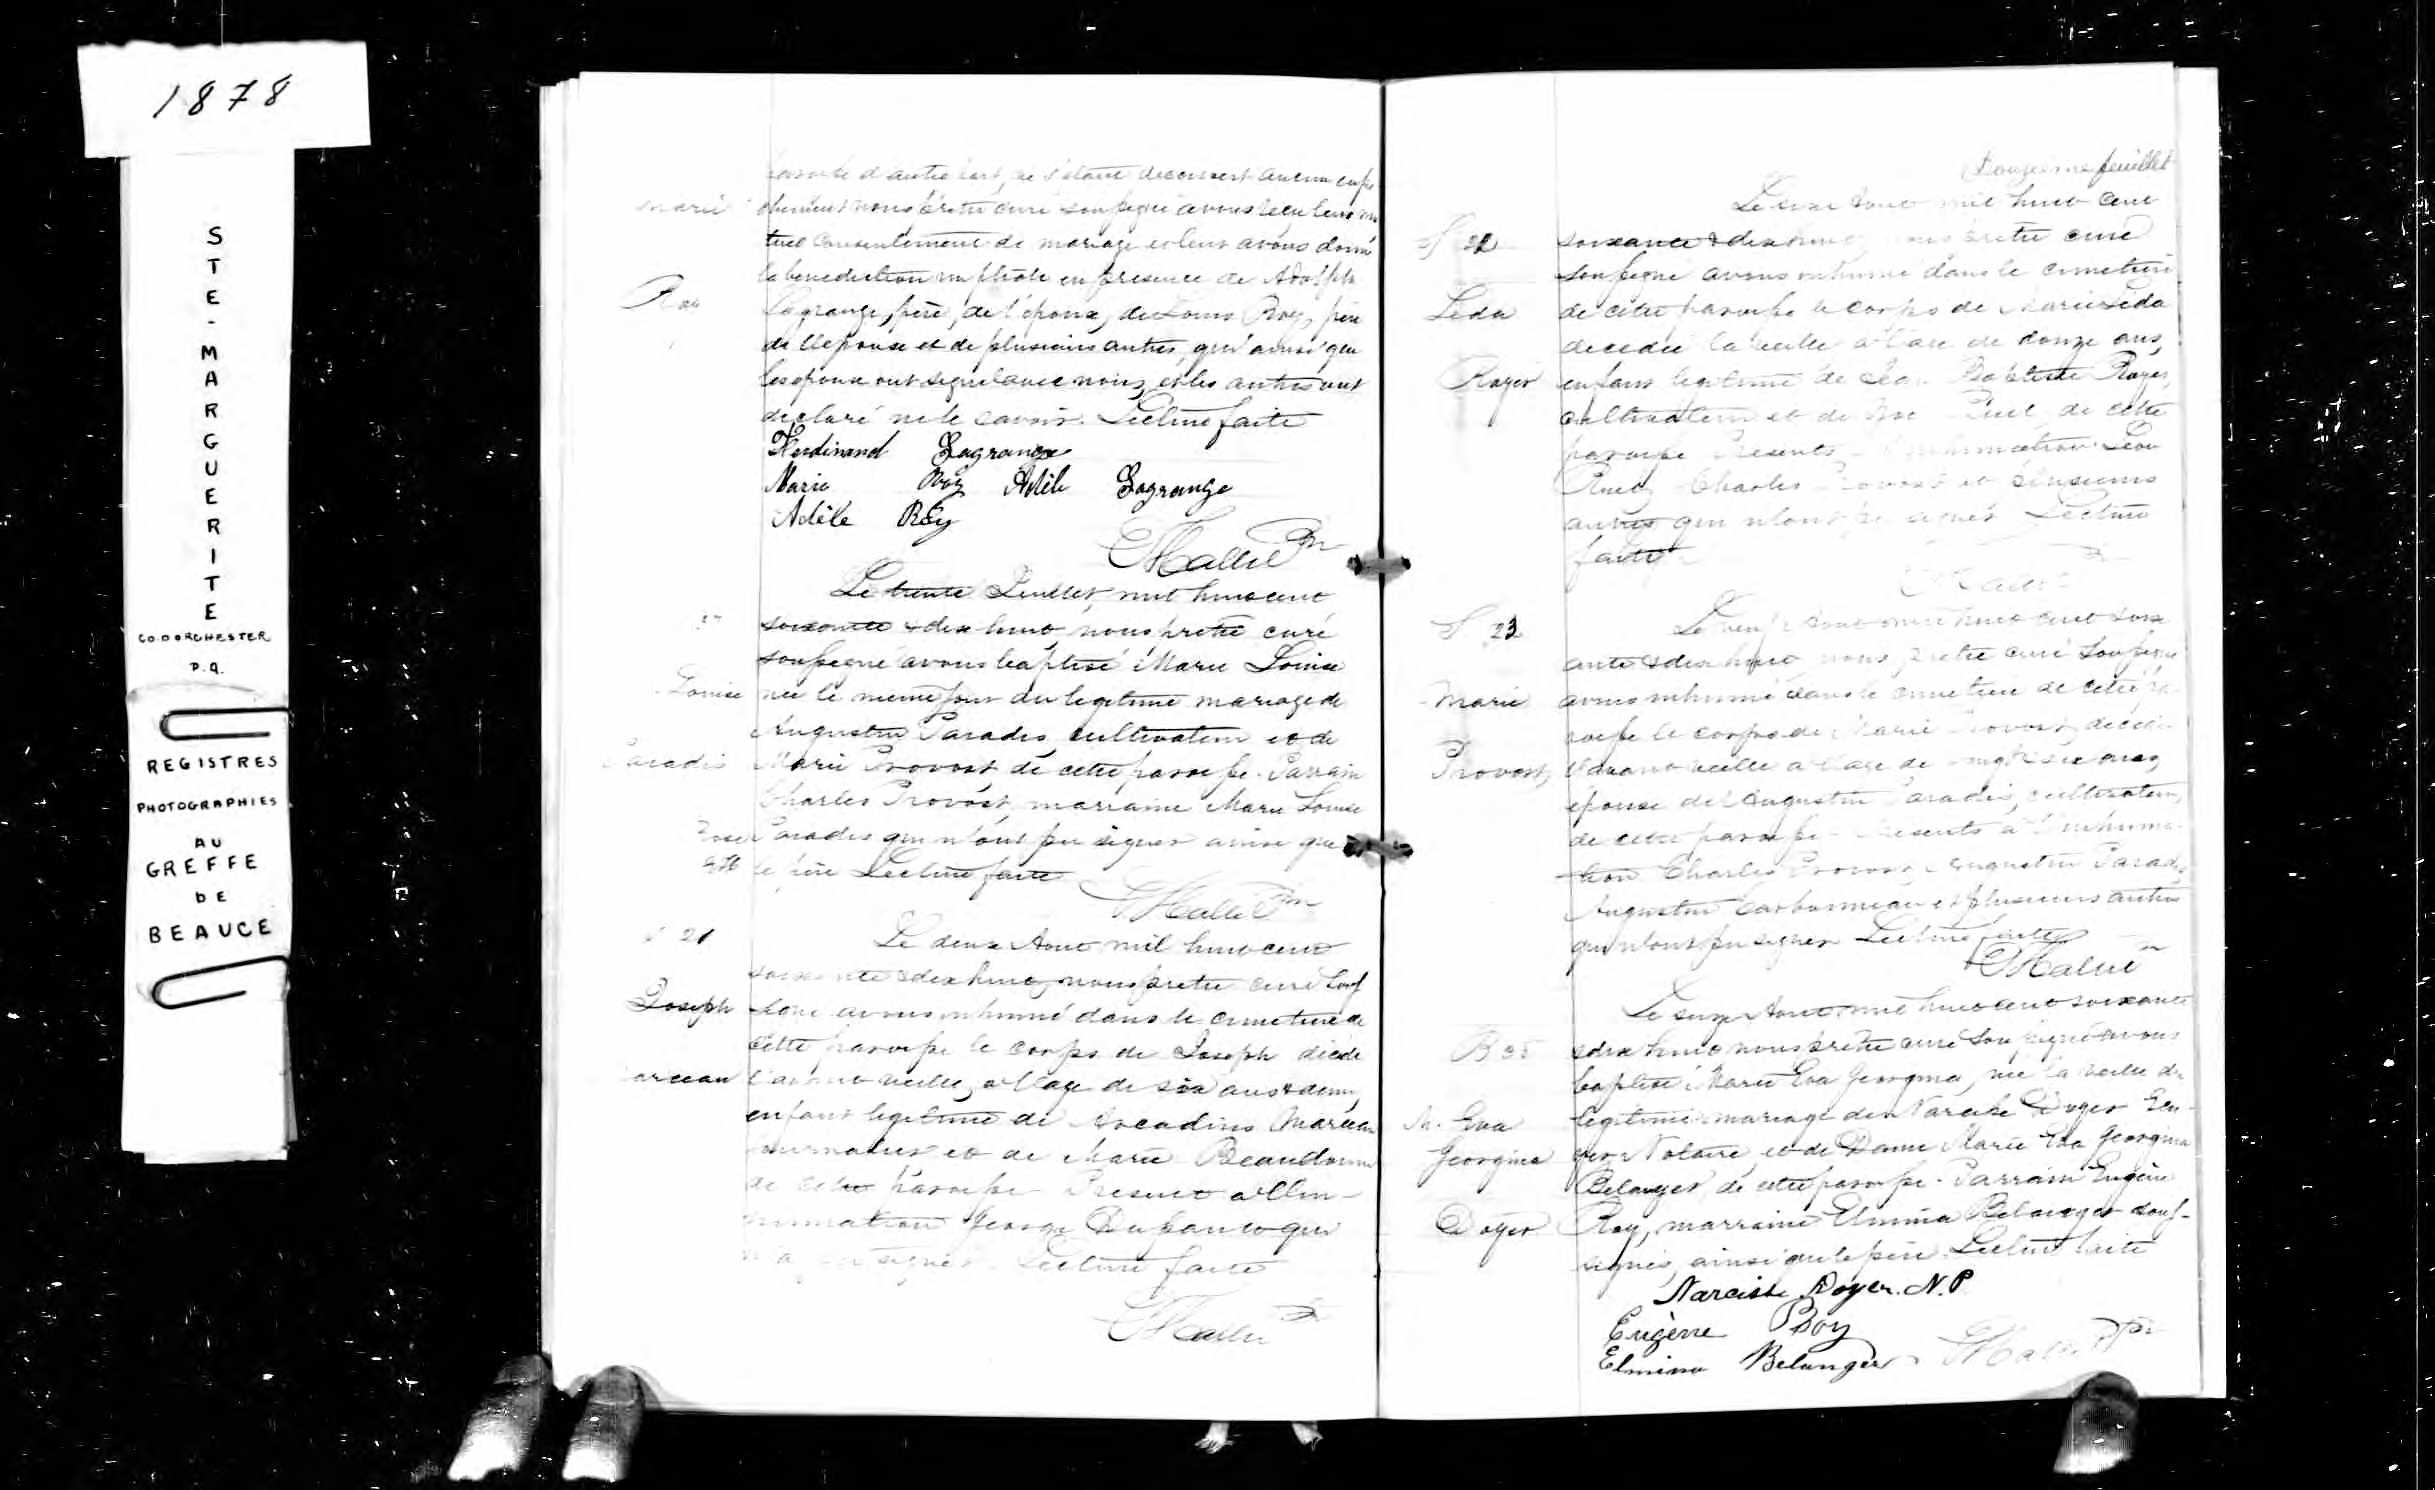 1878
STE-MARGUERITE
CO. DORCHESTER
P.Q.
REGISTRES
PHOTOGRAPHIES
AU
GREFFE
DE
BEAUCE
paroisse d'autre part, ne s'étant decouvert aucun empe
marié
chement nous prêtre curé soussigné avons reçu leur mu
tuel consentement de mariage et leur avons donné
la benediction nuptiale en presence de Adolphe
Roy
Lagrange, père, de l'epoux, de Louis Roy, père
de l'epouse et de plusieurs autres, qui ainsi que
les epoux ont signé avec nous, et les autres ont
declaré ne le savoir. Lecture faite
Ferdinand Lagrange
Marie Roy Adèle Lagrange
Adèle Roy
Le trente Juillet, mil huit cent
soixante & dix huit, nous prêtre curé
soussigné avons baptisé Marie Louise
Louise
née le même jour du legitime mariage de
Augustin Paradis, cultivateur et de
Paradis
Marie Provost de cette paroisse. Parrain
Charles Provost, marraine Marie Louise
Paradis qui n'ont pu signer ainsi que
le père Lecture faite
S 21
Le deux Aout mil huit cent
soixante & dix huit, nous prêtre curé sous
Joseph
signé avons inhumé dans le cimetiere de
cette paroisse le corps de Joseph décédé
Marceau
l'avant veille, a l'age de six ans & demi,
enfant legitime de Arcadius Marceau
journalier et de Marie Beaudoin
de cette paroisse Present a l'in-
humation George qui
n'a pu signer. Lecture faite
Douzieme feuillet
Le Aout mil huit cent
S 22
soixante & dix huit nous prêtre curé
soussigné avons inhumé dans le cimetiere
Léda
de cette paroisse le corps de Marie Léda
decedée la veille a l'age de douze ans,
Royer
enfant legitime de Jean Baptiste Royer,
cultivateur et de de cette
paroisse Presents a l'inhumation Leon
Charles Provost et plusieurs
autres qui n'ont pu signer Lecture
faite
S 23
Le neuf Aout mil huit cent soix
ante & dix huit, nous prêtre curé soussigné
Marie
avons inhumé dans le cimetiere de cette pa
roisse le corps de Marie Provost, decedée
Provost,
l'avant veille a l'age de ans,
épouse de Augustin Paradis, cultivateur,
de cette paroisse Presents a l'inhuma-
tion Charles Provost, Augustin Paradis,
Augustin Carbonneau et plusieurs autres
qui n'ont pu signer Lecture faite
Le seize Aout mil huit cent soixante
& dix huit nous prêtre curé soussigné avons
baptisé Marie Eva Georgina, née la veille du
M. Eva
legitime mariage de Narcisse Doyer Ecu-
Georgina
yer Notaire, et de Dame Marie Eva Georgina
Belanger de cette paroisse. Parrain Eugène
Doyer
Roy, marraine Elmina Belanger sous-
signés, ainsi que le père. Lecture faite
Narcisse Doyer. N.P
Eugène Roy
Elmina Belanger